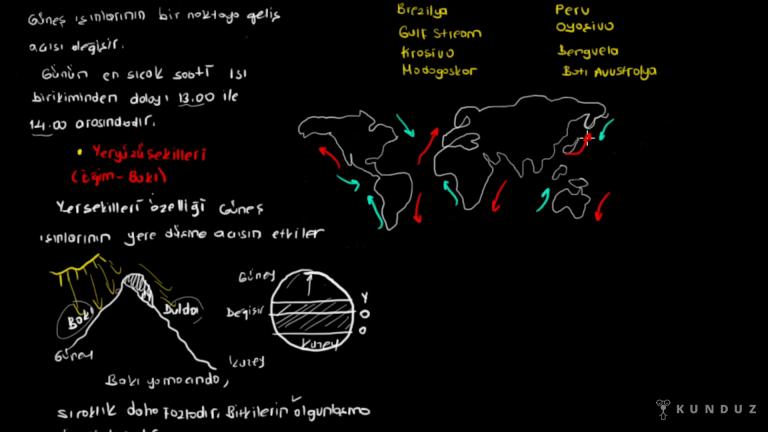 Güneş ışınlarının bir noktaya geliş
açısı değişir.
Günün en sıcak saati ısı
birikiminden dolayı 13.00 ile
14.00 arasındadır.
• Yeryüzü şekilleri
(Eğim-Bakı)
Yerşekilleri özelliği Güneş
ışınlarının yere düşme açısın etkiler
Bakı
Dulda
Güney
Kuzey
Güney
Değişir
Y
O
O
Kuzey
Bakı yamacında,
sıcaklık daha fazladır. Bitkilerin olgunlaşma
Brezilya
Gulf Stream
Krosivo
Madagaskar
Peru
Oyosivo
Benguela
Batı Avustralya
KUNDUZ